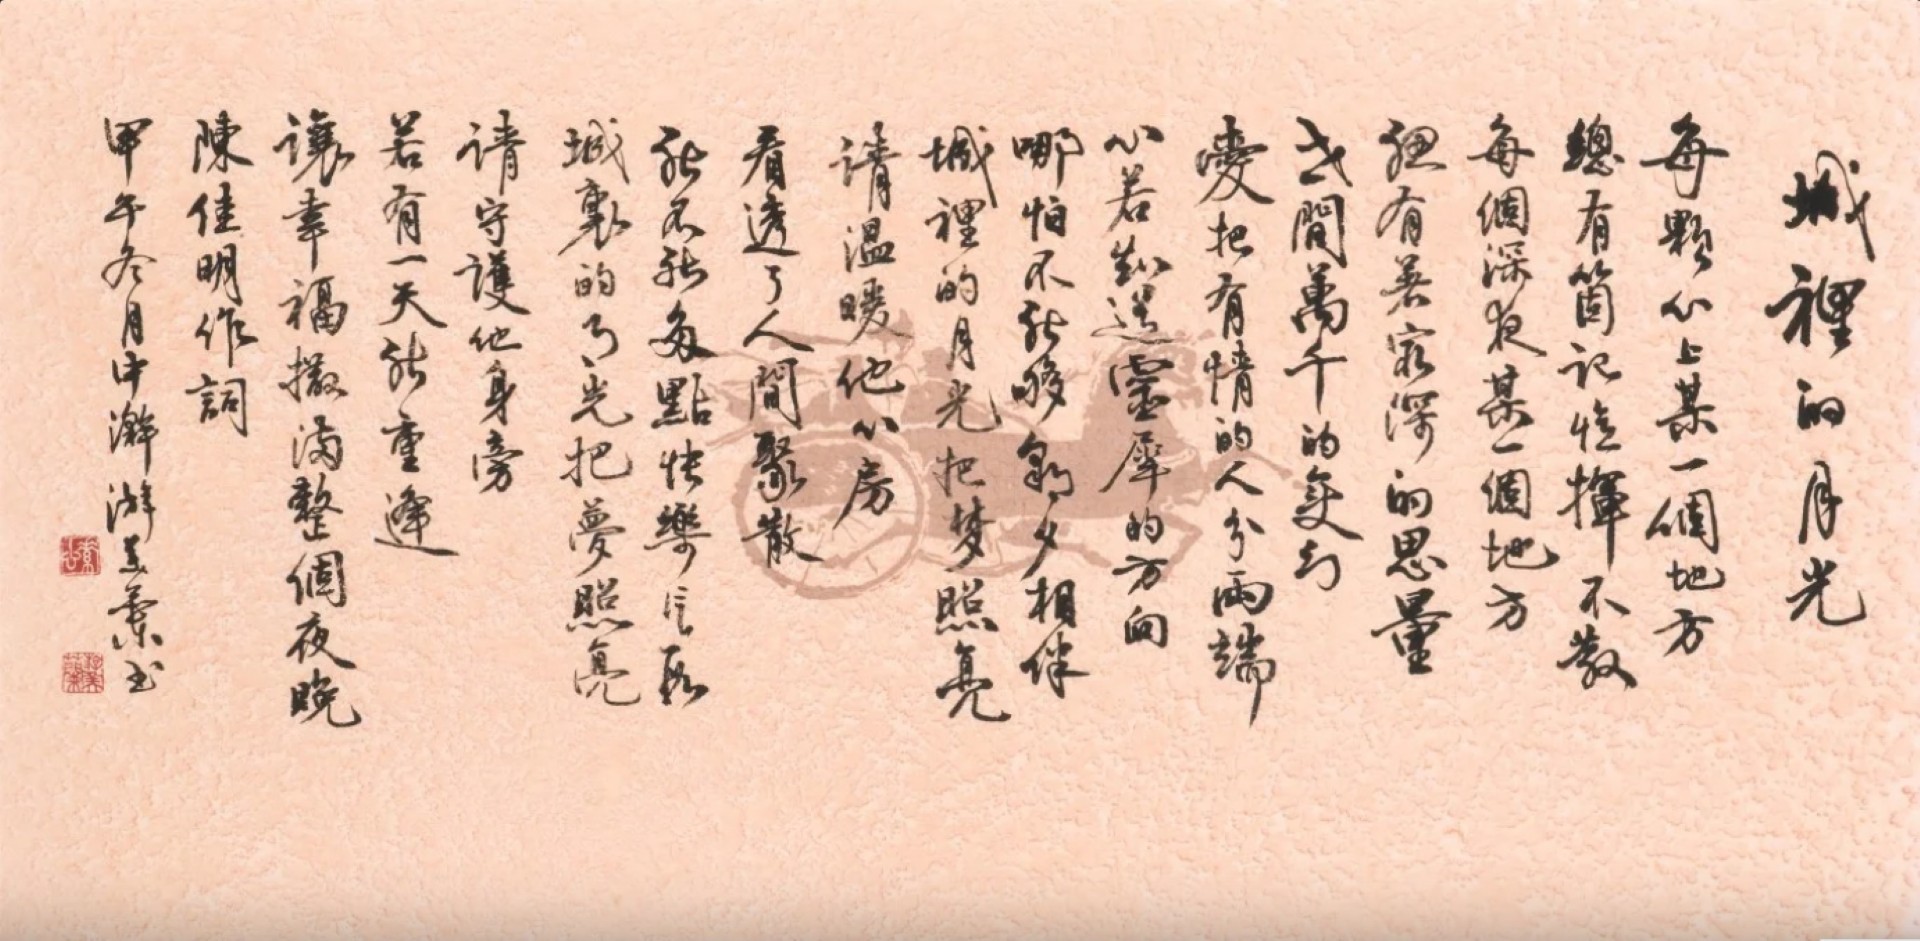 城裡的月光
每顆心上某一個地方
總有箇記憶揮不散
每個深夜某一個地方
總有著最深的思量
世間萬千的變幻
愛把有情的人分兩端
心若知道靈犀的方向
哪怕不能够朝夕相伴
城裡的月光把梦照亮
請溫暖他心房
看透了人間聚散
能不能多點快樂片段
城裏的月光把夢照亮
請守護他身旁
若有一天能重逢
讓幸福撒滿整個夜晚
陳佳明作詞
甲午冬月中澣游